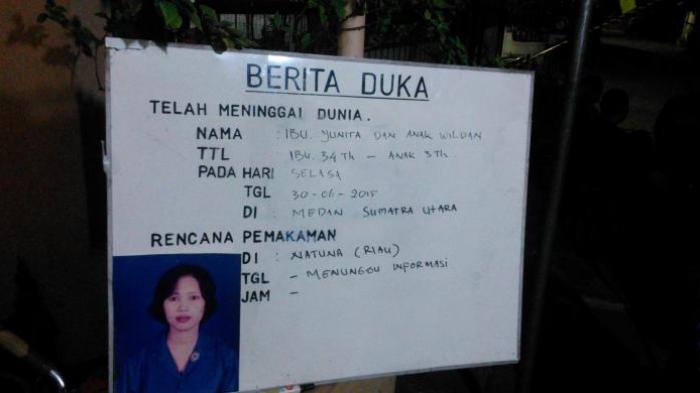 BERITA DUKA
TELAH MENINGGAL DUNIA.
NAMA : IBU. YUNITA DAN ANAK WILDAN
TTL IBU. 34 Th - ANAK 3 Th.
PADA HARI SELASA
TGL 30-06-2015
DI : MEDAN SUMATRA UTARA
RENCANA PEMAKAMAN
DI : NATUNA (RIAU)
TGL - MENUNGGU INFORMASI
JAM -